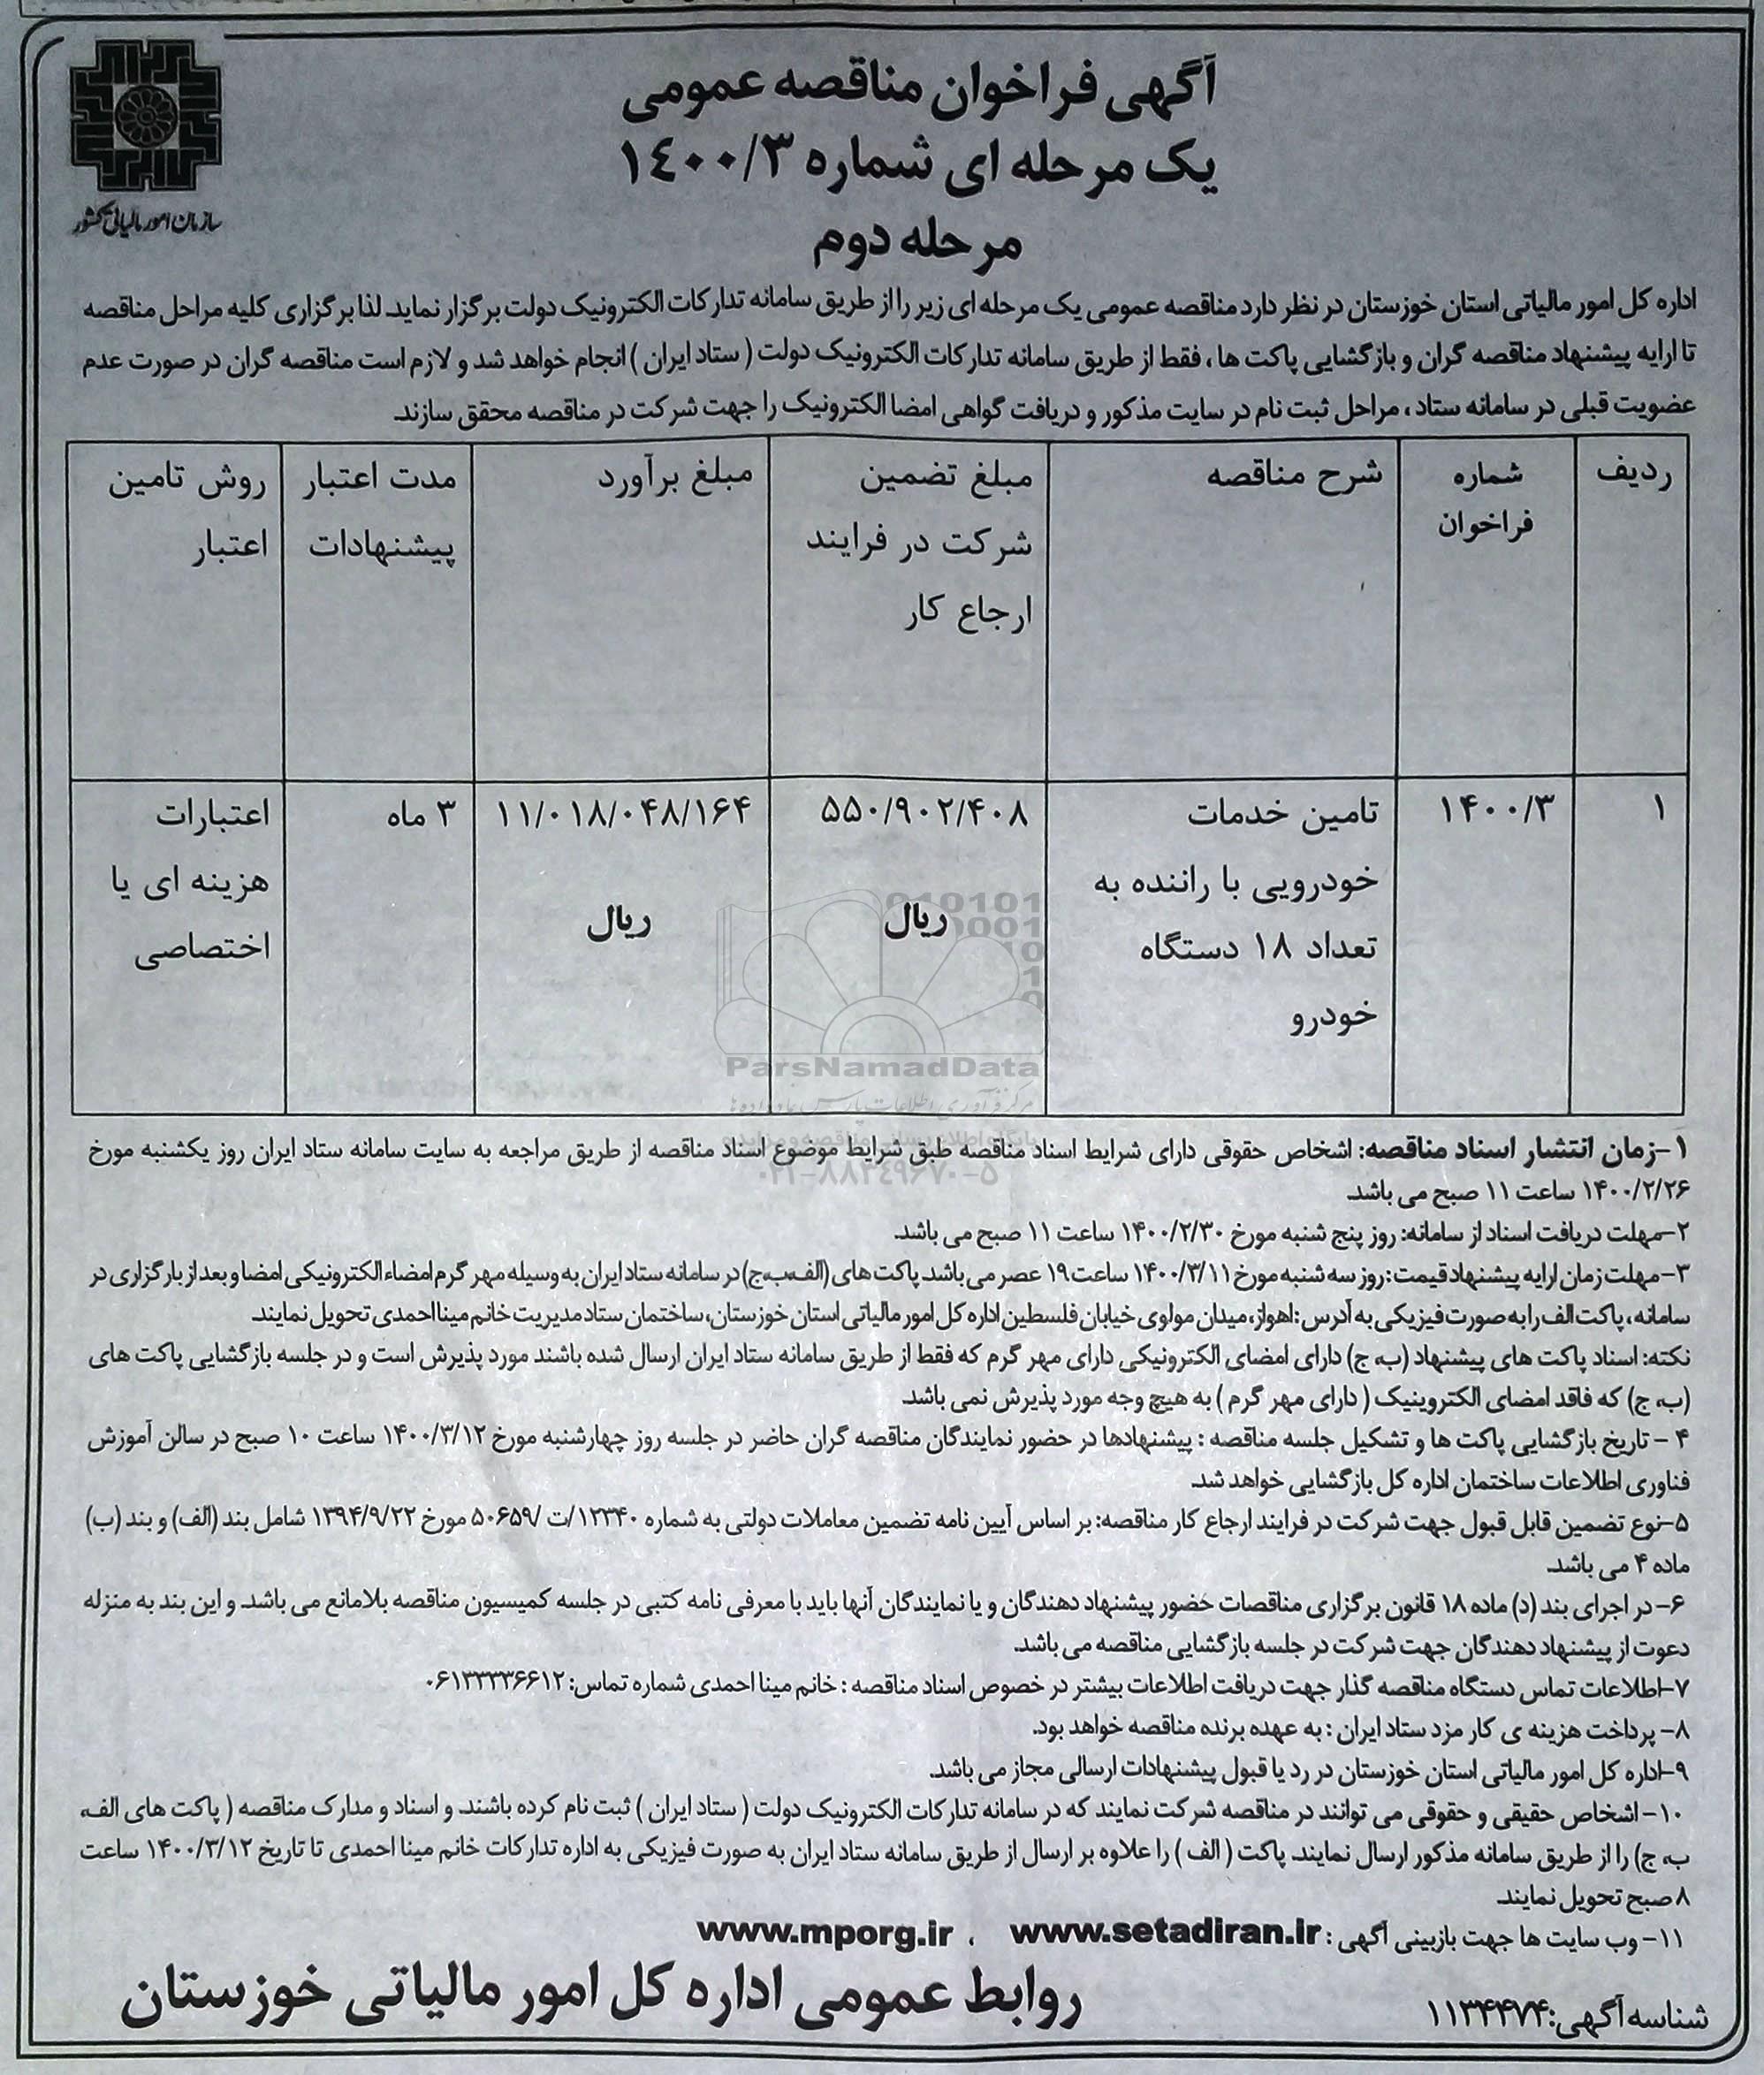 آگهی فراخوان مناقصه عمومی
یک مرحله ای شماره ۱۴۰۰/۳
مرحله دوم
سازمان امور مالیاتی کشور
اداره کل امور مالیاتی استان خوزستان در نظر دارد مناقصه عمومی یک مرحله ای زیر را از طریق سامانه تدارکات الکترونیک دولت برگزار نماید. لذا برگزاری کلیه مراحل مناقصه
تا ارایه پیشنهاد مناقصه گران و بازگشایی پاکت ها ، فقط از طریق سامانه تدارکات الکترونیک دولت ( ستاد ایران ) انجام خواهد شد و لازم است مناقصه گران در صورت عدم
عضویت قبلی در سامانه ستاد ، مراحل ثبت نام در سایت مذکور و دریافت گواهی امضا الکترونیک را جهت شرکت در مناقصه محقق سازند.
ردیف
شماره
فراخوان
شرح مناقصه
مبلغ تضمین
شرکت در فرایند
ارجاع کار
مبلغ برآورد
مدت اعتبار
پیشنهادات
روش تامین
اعتبار
۱
۱۴۰۰/۳
تامین خدمات
خودرویی با راننده به
تعداد ۱۸ دستگاه
خودرو
۵۵۰/۹۰۲/۴۰۸
ریال
۱۱/۰۱۸/۰۴۸/۱۶۴
ریال
۳ ماه
اعتبارات
هزینه ای یا
اختصاصی
ParsNamadData
مرکز فرآوری اطلاعات پارس نماد داده ها
پایگاه اطلاع رسانی مناقصه و مزایده
۰۲۱-۸۸۳۴۹۶۷۰-۵
۱-زمان انتشار اسناد مناقصه: اشخاص حقوقی دارای شرایط اسناد مناقصه طبق شرایط موضوع اسناد مناقصه از طریق مراجعه به سایت سامانه ستاد ایران روز یکشنبه مورخ
۱۴۰۰/۲/۲۶ ساعت ۱۱ صبح می باشد.
۲-مهلت دریافت اسناد از سامانه: روز پنج شنبه مورخ ۱۴۰۰/۲/۳۰ ساعت ۱۱ صبح می باشد.
۳-مهلت زمان ارایه پیشنهاد قیمت: روز سه شنبه مورخ ۱۴۰۰/۳/۱۱ ساعت ۱۹ عصر می باشد. پاکت های (الف،ب،ج) در سامانه ستاد ایران به وسیله مهر گرم امضاء الکترونیکی امضا و بعد از بارگزاری در
سامانه ، پاکت الف را به صورت فیزیکی به آدرس : اهواز، میدان مولوی خیابان فلسطین اداره کل امور مالیاتی استان خوزستان، ساختمان ستاد مدیریت خانم مینا احمدی تحویل نمایند.
نکته: اسناد پاکت های پیشنهاد (ب، ج) دارای امضای الکترونیکی دارای مهر گرم که فقط از طریق سامانه ستاد ایران ارسال شده باشند مورد پذیرش است و در جلسه بازگشایی پاکت های
(ب، ج) که فاقد امضای الکترونیک ( دارای مهر گرم ) به هیچ وجه مورد پذیرش نمی باشد.
۴ - تاریخ بازگشایی پاکت ها و تشکیل جلسه مناقصه : پیشنهادها در حضور نمایندگان مناقصه گران حاضر در جلسه روز چهارشنبه مورخ ۱۴۰۰/۳/۱۲ ساعت ۱۰ صبح در سالن آموزش
فناوری اطلاعات ساختمان اداره کل بازگشایی خواهد شد.
۵-نوع تضمین قابل قبول جهت شرکت در فرایند ارجاع کار مناقصه: بر اساس آیین نامه تضمین معاملات دولتی به شماره ۱۲۳۴۰/ت /۵۰۶۵۹ مورخ ۱۳۹۴/۹/۲۲ شامل بند (الف) و بند (ب)
ماده ۴ می باشد.
۶- در اجرای بند (د) ماده ۱۸ قانون برگزاری مناقصات حضور پیشنهاد دهندگان و یا نمایندگان آنها باید با معرفی نامه کتبی در جلسه کمیسیون مناقصه بلامانع می باشد. و این بند به منزله
دعوت از پیشنهاد دهندگان جهت شرکت در جلسه بازگشایی مناقصه می باشد.
۷-اطلاعات تماس دستگاه مناقصه گذار جهت دریافت اطلاعات بیشتر در خصوص اسناد مناقصه : خانم مینا احمدی شماره تماس: ۰۶۱۳۳۳۳۶۶۱۲
۸- پرداخت هزینه ی کار مزد ستاد ایران : به عهده برنده مناقصه خواهد بود.
۹-اداره کل امور مالیاتی استان خوزستان در رد یا قبول پیشنهادات ارسالی مجاز می باشد.
۱۰- اشخاص حقیقی و حقوقی می توانند در مناقصه شرکت نمایند که در سامانه تدارکات الکترونیک دولت ( ستاد ایران ) ثبت نام کرده باشند. و اسناد و مدارک مناقصه ( پاکت های الف،
ب، ج) را از طریق سامانه مذکور ارسال نمایند. پاکت ( الف ) را علاوه بر ارسال از طریق سامانه ستاد ایران به صورت فیزیکی به اداره تدارکات خانم مینا احمدی تا تاریخ ۱۴۰۰/۳/۱۲ ساعت
۸ صبح تحویل نمایند.
۱۱- وب سایت ها جهت بازبینی آگهی : www.setadiran.ir ، www.mporg.ir
شناسه آگهی: ۱۱۳۴۴۷۴
روابط عمومی اداره کل امور مالیاتی خوزستان